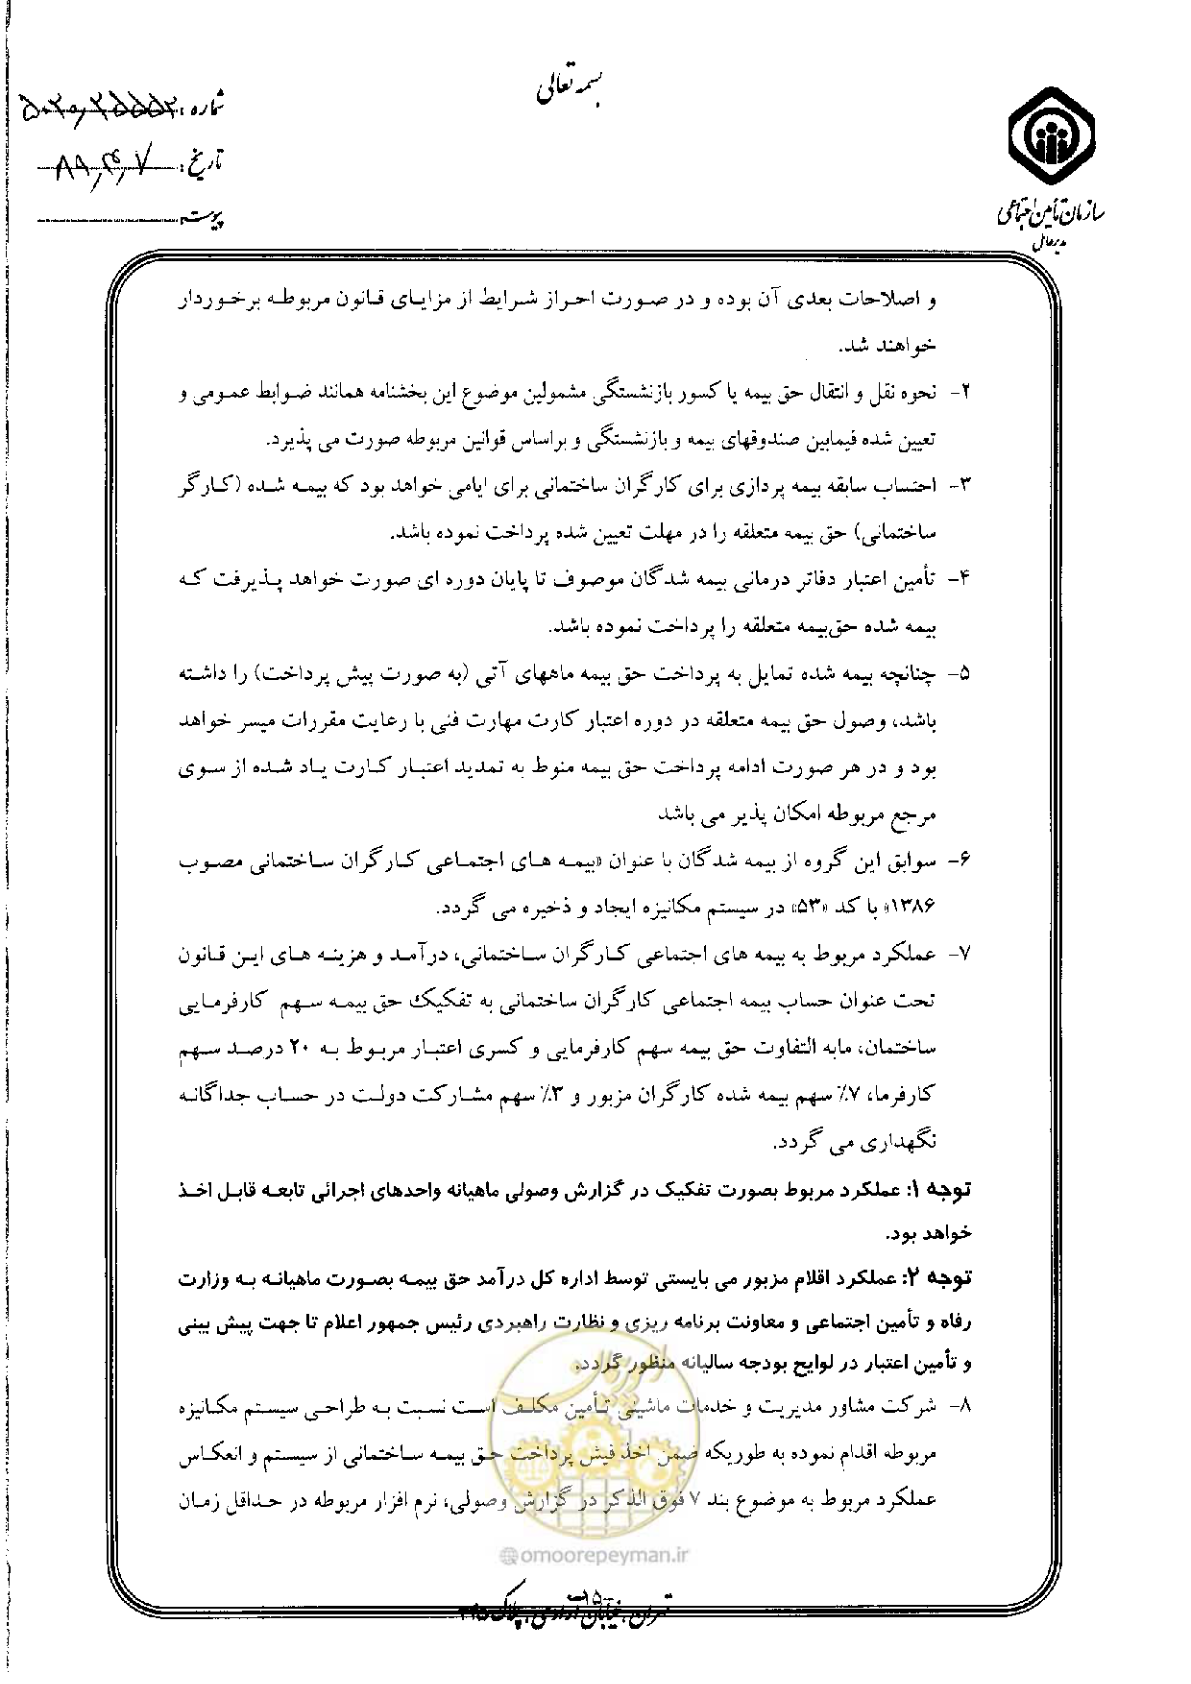 بسمه تعالی
شماره: ۵۰۲۰٫۲۵۵۵۲
تاریخ: ۸۹٫۴٫۷
پیوست:
سازمان تأمین اجتماعی
مدیرعامل
و اصلاحات بعدی آن بوده و در صورت احراز شرایط از مزایای قانون مربوطه برخوردار
خواهند شد.
۲- نحوه نقل و انتقال حق بیمه یا کسور بازنشستگی مشمولین موضوع این بخشنامه همانند ضوابط عمومی و
تعیین شده فیمابین صندوقهای بیمه و بازنشستگی و براساس قوانین مربوطه صورت می پذیرد.
۳- احتساب سابقه بیمه پردازی برای کارگران ساختمانی برای ایامی خواهد بود که بیمه شده (کارگر
ساختمانی) حق بیمه متعلقه را در مهلت تعیین شده پرداخت نموده باشد.
۴- تأمین اعتبار دفاتر درمانی بیمه شدگان موصوف تا پایان دوره ای صورت خواهد پذیرفت که
بیمه شده حق‌بیمه متعلقه را پرداخت نموده باشد.
۵- چنانچه بیمه شده تمایل به پرداخت حق بیمه ماههای آتی (به صورت پیش پرداخت) را داشته
باشد، وصول حق بیمه متعلقه در دوره اعتبار کارت مهارت فنی با رعایت مقررات میسر خواهد
بود و در هر صورت ادامه پرداخت حق بیمه منوط به تمدید اعتبار کارت یاد شده از سوی
مرجع مربوطه امکان پذیر می باشد
۶- سوابق این گروه از بیمه شدگان با عنوان «بیمه های اجتماعی کارگران ساختمانی مصوب
۱۳۸۶» با کد «۵۳» در سیستم مکانیزه ایجاد و ذخیره می گردد.
۷- عملکرد مربوط به بیمه های اجتماعی کارگران ساختمانی، درآمد و هزینه های این قانون
تحت عنوان حساب بیمه اجتماعی کارگران ساختمانی به تفکیک حق بیمه سهم کارفرمایی
ساختمان، مابه التفاوت حق بیمه سهم کارفرمایی و کسری اعتبار مربوط به ۲۰ درصد سهم
کارفرما، ۷٪ سهم بیمه شده کارگران مزبور و ۳٪ سهم مشارکت دولت در حساب جداگانه
نگهداری می گردد.
توجه ۱: عملکرد مربوط بصورت تفکیک در گزارش وصولی ماهیانه واحدهای اجرائی تابعه قابل اخذ
خواهد بود.
توجه ۲: عملکرد اقلام مزبور می بایستی توسط اداره کل درآمد حق بیمه بصورت ماهیانه به وزارت
رفاه و تأمین اجتماعی و معاونت برنامه ریزی و نظارت راهبردی رئیس جمهور اعلام تا جهت پیش بینی
و تأمین اعتبار در لوایح بودجه سالیانه منظور گردد.
۸- شرکت مشاور مدیریت و خدمات ماشینی تأمین مکلف است نسبت به طراحی سیستم مکانیزه
مربوطه اقدام نموده به طوریکه ضمن اخذ فیش پرداخت حق بیمه ساختمانی از سیستم و انعکاس
عملکرد مربوط به موضوع بند ۷ فوق الذکر در گزارش وصولی، نرم افزار مربوطه در حداقل زمان
@omoorepeyman.ir
تهران، خیابان آزادی، پلاک ۳۴۵